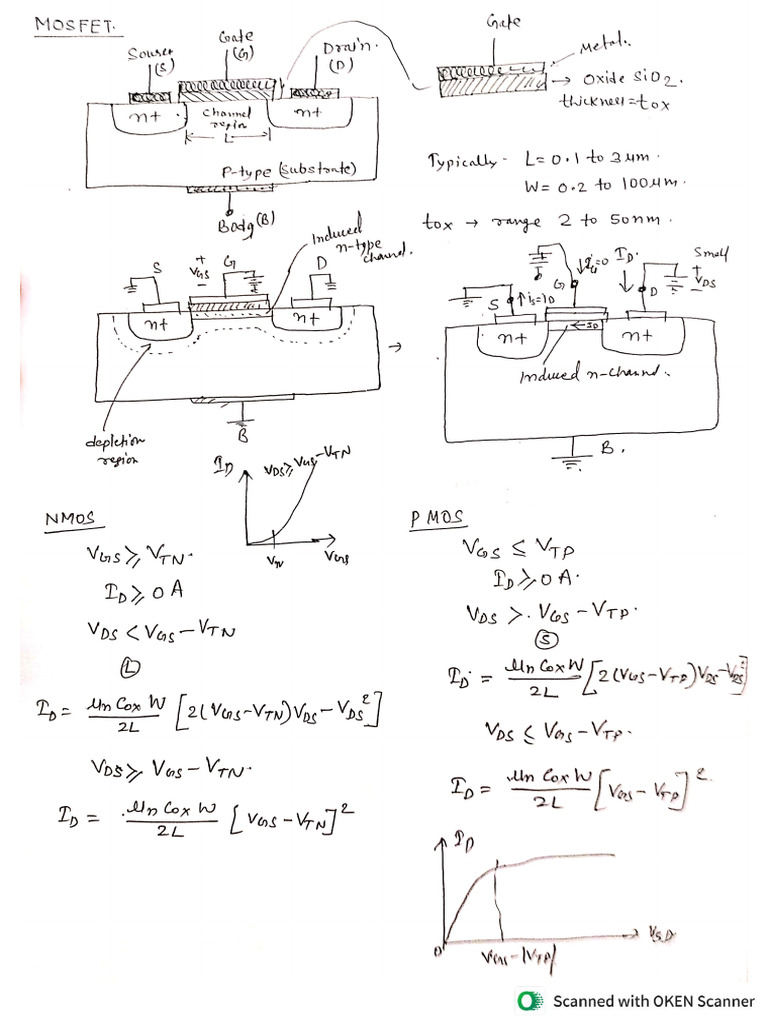 MOSFET.
Source (S)
Gate (G)
Drain. (D)
n+
n+
channel region
L
P-type (substrate)
Body (B)
Gate
Metal.
→ Oxide SiO2.
thickness = tox
Typically - L = 0.1 to 3 μm.
W = 0.2 to 100 μm.
tox → range 2 to 50nm.
Induced n-type channel.
S
+ VGS -
G
D
n+
n+
depletion region
B
→
S
↑ is=ID
G
↓ iG=0
ID.
D
Small
+ VDS -
n+
← ID
n+
Induced n-channel.
B.
ID
VDS ≥ VGS - VTN
VTN
VGS
NMOS
VGS ≥ VTN.
ID ≥ 0 A
VDS < VGS - VTN
(L)
ID = μn Cox W / 2L [2(VGS - VTN) VDS - VDS²]
VDS ≥ VGS - VTN.
ID = μn Cox W / 2L [VGS - VTN]²
PMOS
VGS ≤ VTP
ID ≥ 0 A.
VDS > VGS - VTP.
(S)
ID = μn Cox W / 2L [2(VGS - VTP) VDS - VDS²]
VDS ≤ VGS - VTP.
ID = μn Cox W / 2L [VGS - VTP]²
ID
0
VGS - |VTP|
VSD
Scanned with OKEN Scanner